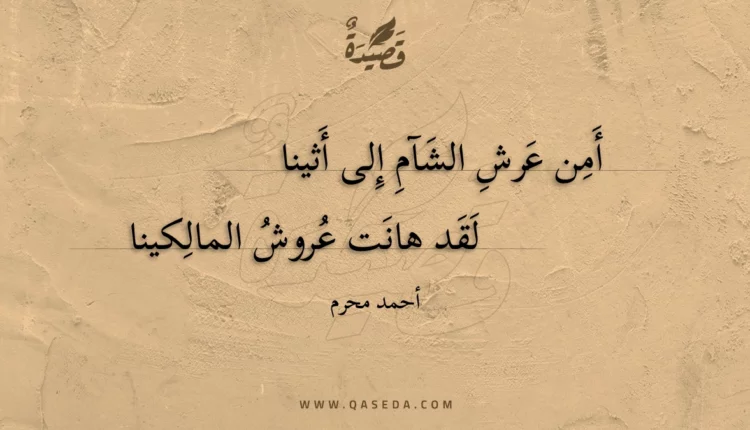 قَصِيدَةٌ
أَمِن عَرشِ الشَآمِ إِلى أَثينا
لَقَد هانَت عُروشُ المالِكينا
أحمد محرم
WWW.QASEDA.COM